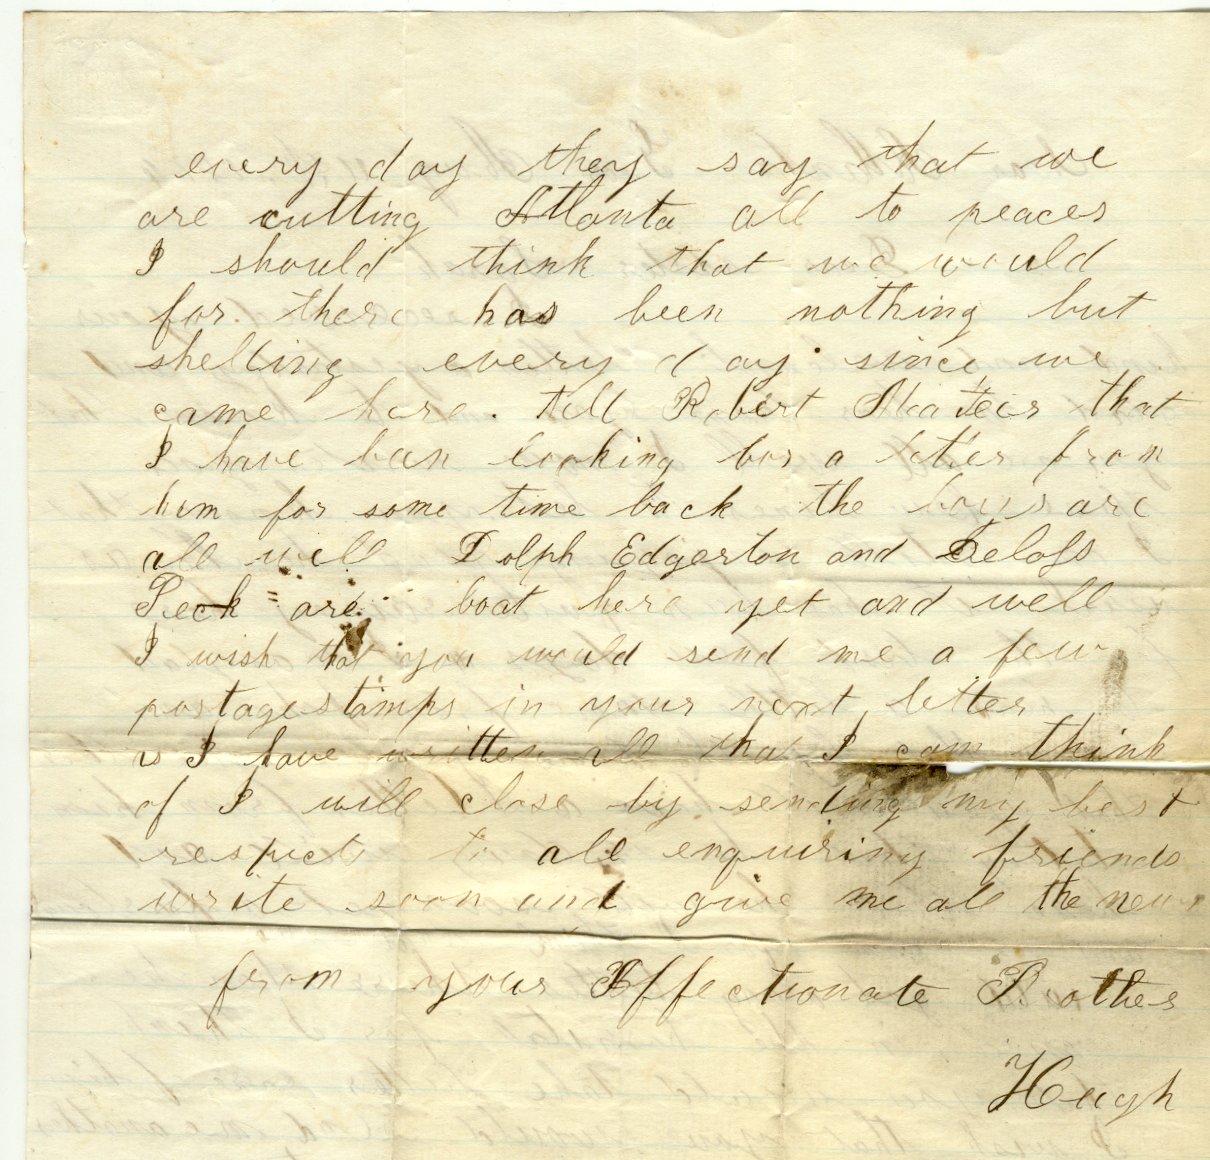 every day they say that we
are cutting Atlanta all to peaces
I should think that we would
for there has been nothing but
shelling every day since we
came here. tell Robert that
I have been looking for a letter from
him for some time back the boys are
all well Dolph Edgerton and Deloss
Peck are boat here yet and well
I wish that you would send me a few
postage stamps in your next letter
as I have written all that I can think
of I will close by sending my best
respects to all enquiring friends
write soon and give me all the news
from your Affectionate Brother
Hugh